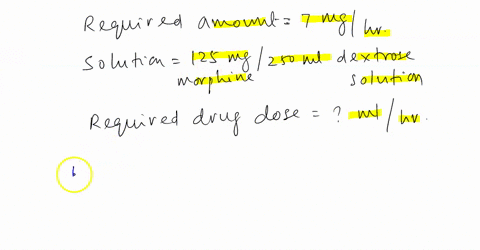 Required amount = 7 mg/hr.
Solution = 125 mg / 250 ml dextrose
morphine solution
Required drug dose = ? ml/hr.